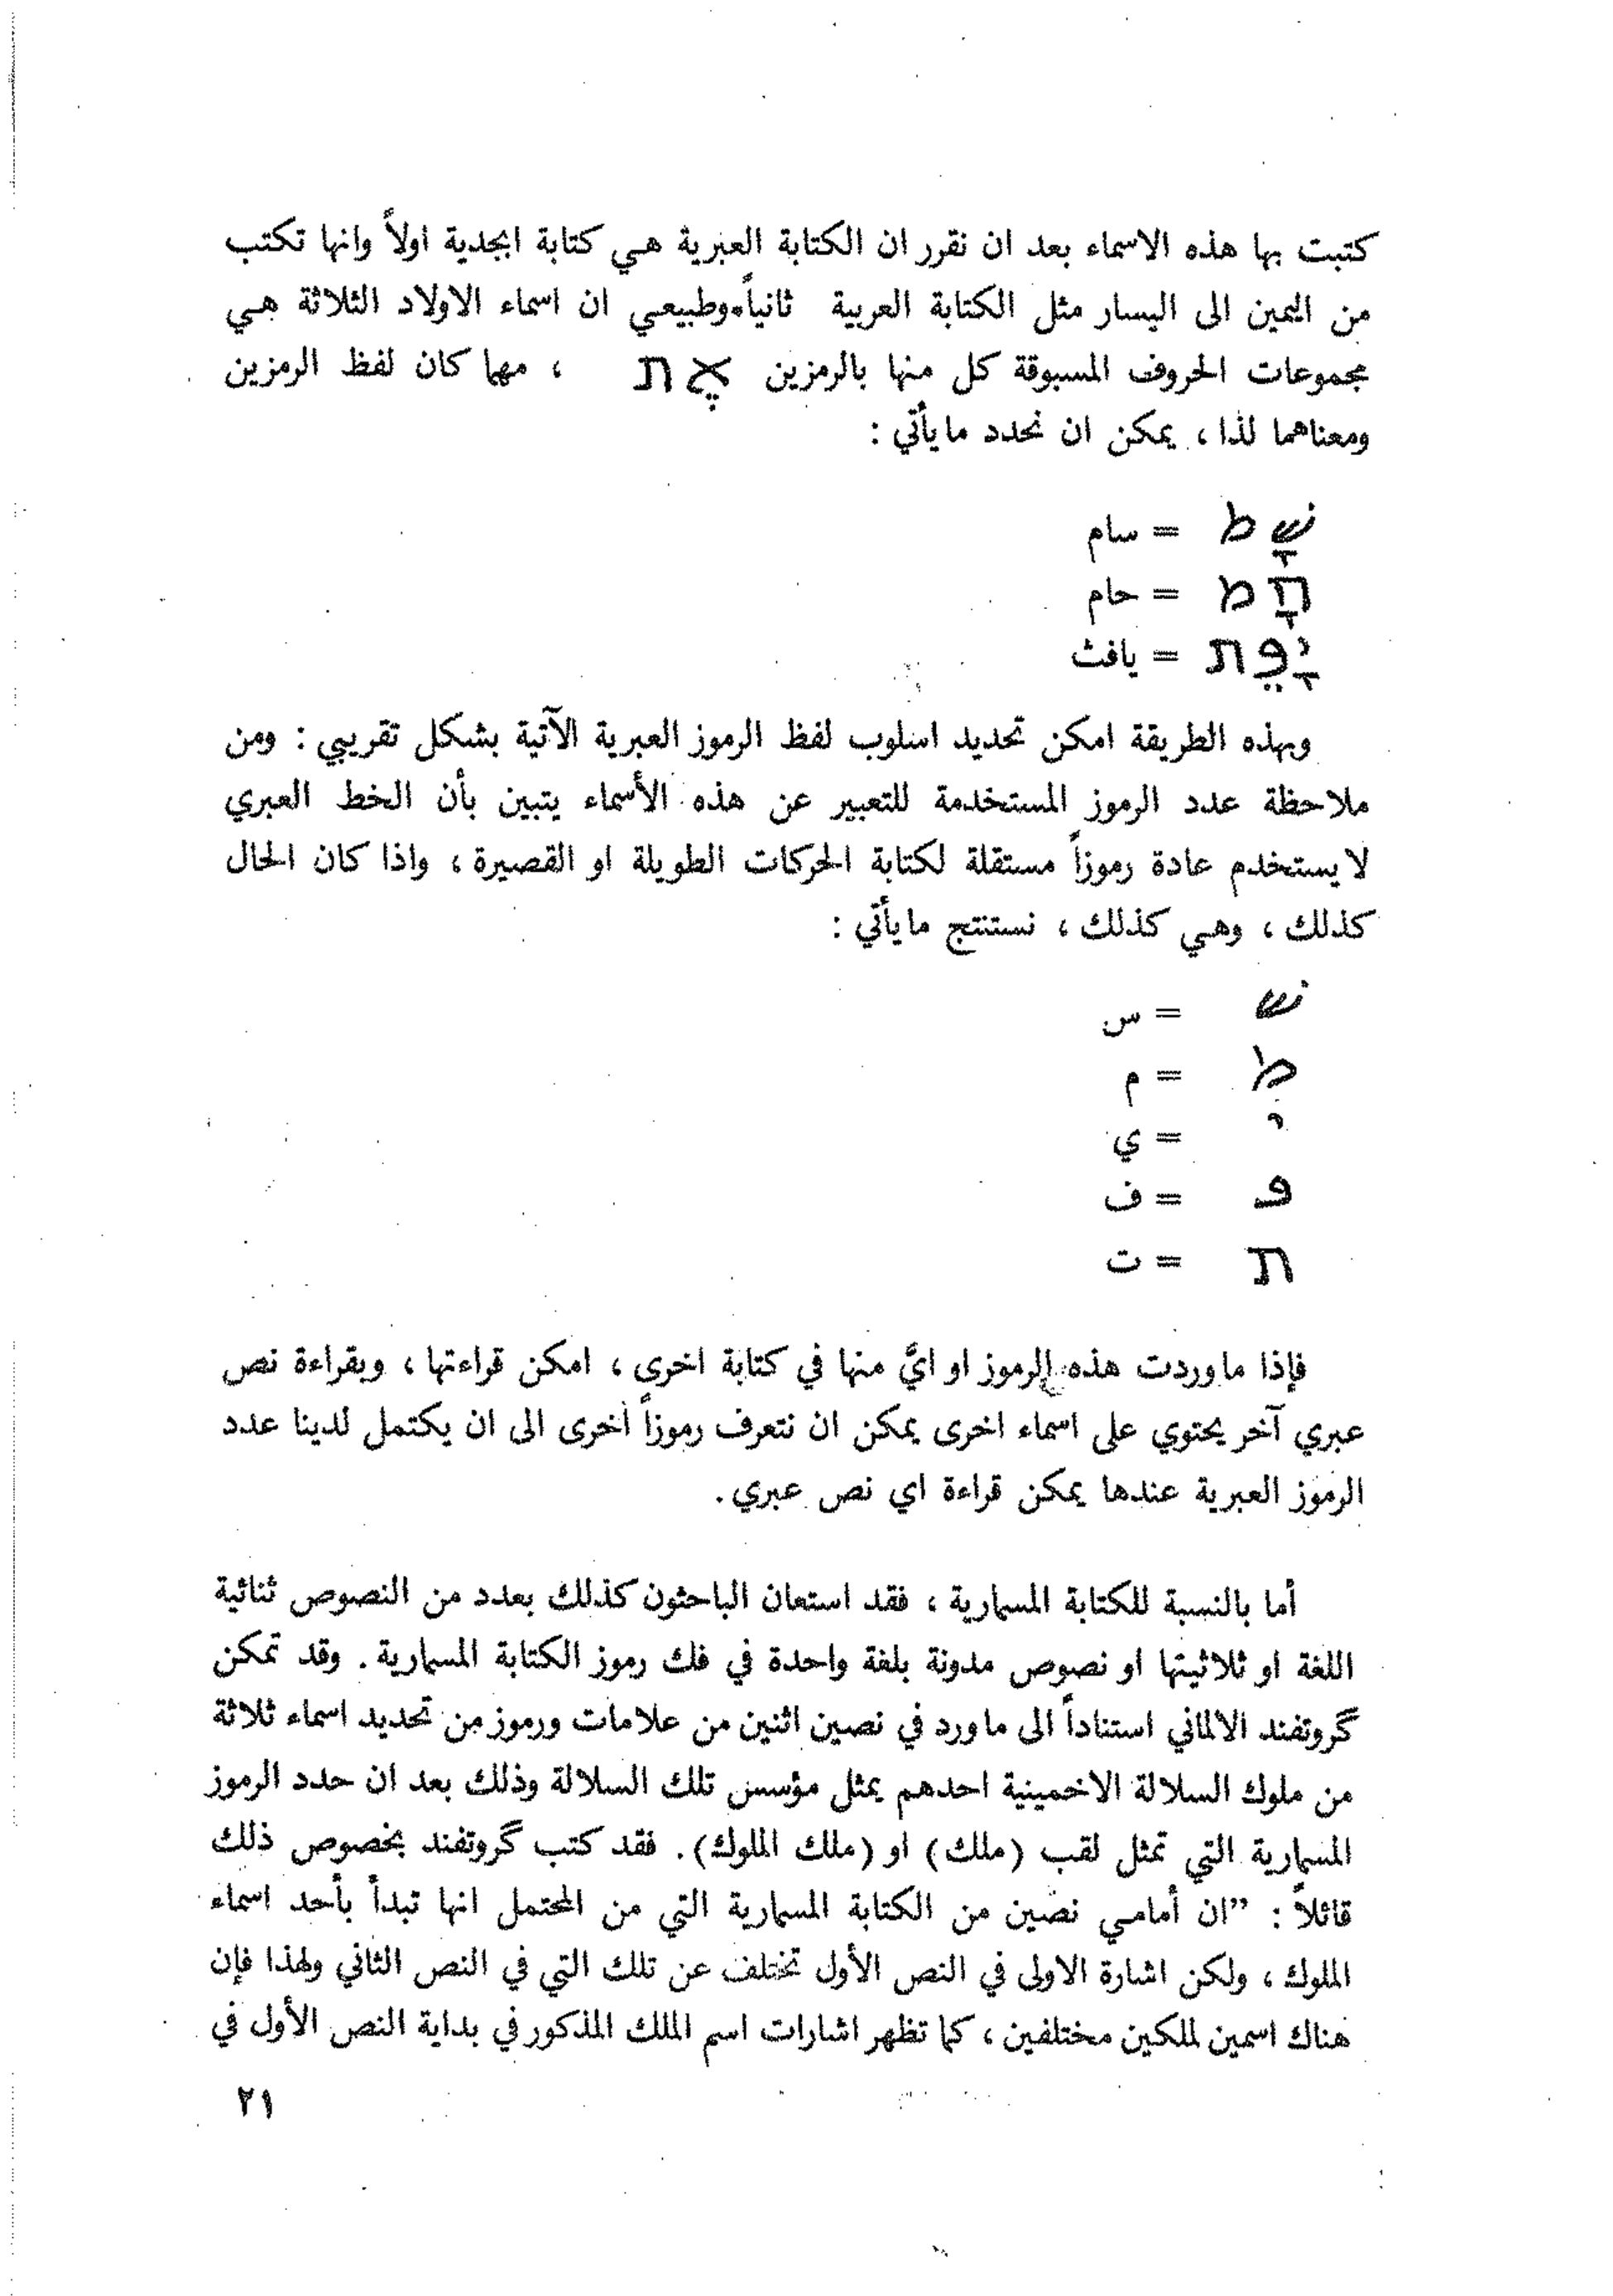 كتبت بها هذه الاسماء بعد ان نقرر ان الكتابة العبرية هي كتابة ابجدية اولاً وانها تكتب
من اليمين الى اليسار مثل الكتابة العربية ثانياً. وطبيعي ان اسماء الاولاد الثلاثة هي
مجموعات الحروف المسبوقة كل منها بالرمزين אֶת ، مهما كان لفظ الرمزين
ومعناهما لذا ، يمكن ان نحدد مايأتي :
שָׁם = سام
חָם = حام
יָפֶת = يافث
وبهذه الطريقة امكن تحديد اسلوب لفظ الرموز العبرية الآتية بشكل تقريبي : ومن
ملاحظة عدد الرموز المستخدمة للتعبير عن هذه الأسماء يتبين بأن الخط العبري
لايستخدم عادة رموزاً مستقلة لكتابة الحركات الطويلة او القصيرة ، واذا كان الحال
كذلك ، وهي كذلك ، نستنتج مايأتي :
ש = س
ם = م
י = ي
פ = ف
ת = ت
فإذا ماوردت هذه الرموز او ايَّ منها في كتابة اخرى ، امكن قراءتها ، وبقراءة نص
عبري آخر يحتوي على اسماء اخرى يمكن ان نتعرف رموزاً أخرى الى ان يكتمل لدينا عدد
الرموز العبرية عندها يمكن قراءة اي نص عبري .
أما بالنسبة للكتابة المسمارية ، فقد استعان الباحثون كذلك بعدد من النصوص ثنائية
اللغة او ثلاثيتها او نصوص مدونة بلغة واحدة في فك رموز الكتابة المسمارية . وقد تمكن
گروتفند الالماني استناداً الى ماورد في نصين اثنين من علامات ورموز من تحديد اسماء ثلاثة
من ملوك السلالة الاخمينية احدهم يمثل مؤسس تلك السلالة وذلك بعد ان حدد الرموز
المسمارية التي تمثل لقب (ملك) او (ملك الملوك) . فقد كتب گروتفند بخصوص ذلك
قائلاً : ”ان أمامي نصين من الكتابة المسمارية التي من المحتمل انها تبدأ بأحد اسماء
الملوك ، ولكن اشارة الاولى في النص الأول تختلف عن تلك التي في النص الثاني ولهذا فإن
هناك اسمين لملكين مختلفين ، كما تظهر اشارات اسم الملك المذكور في بداية النص الأول في
٢١